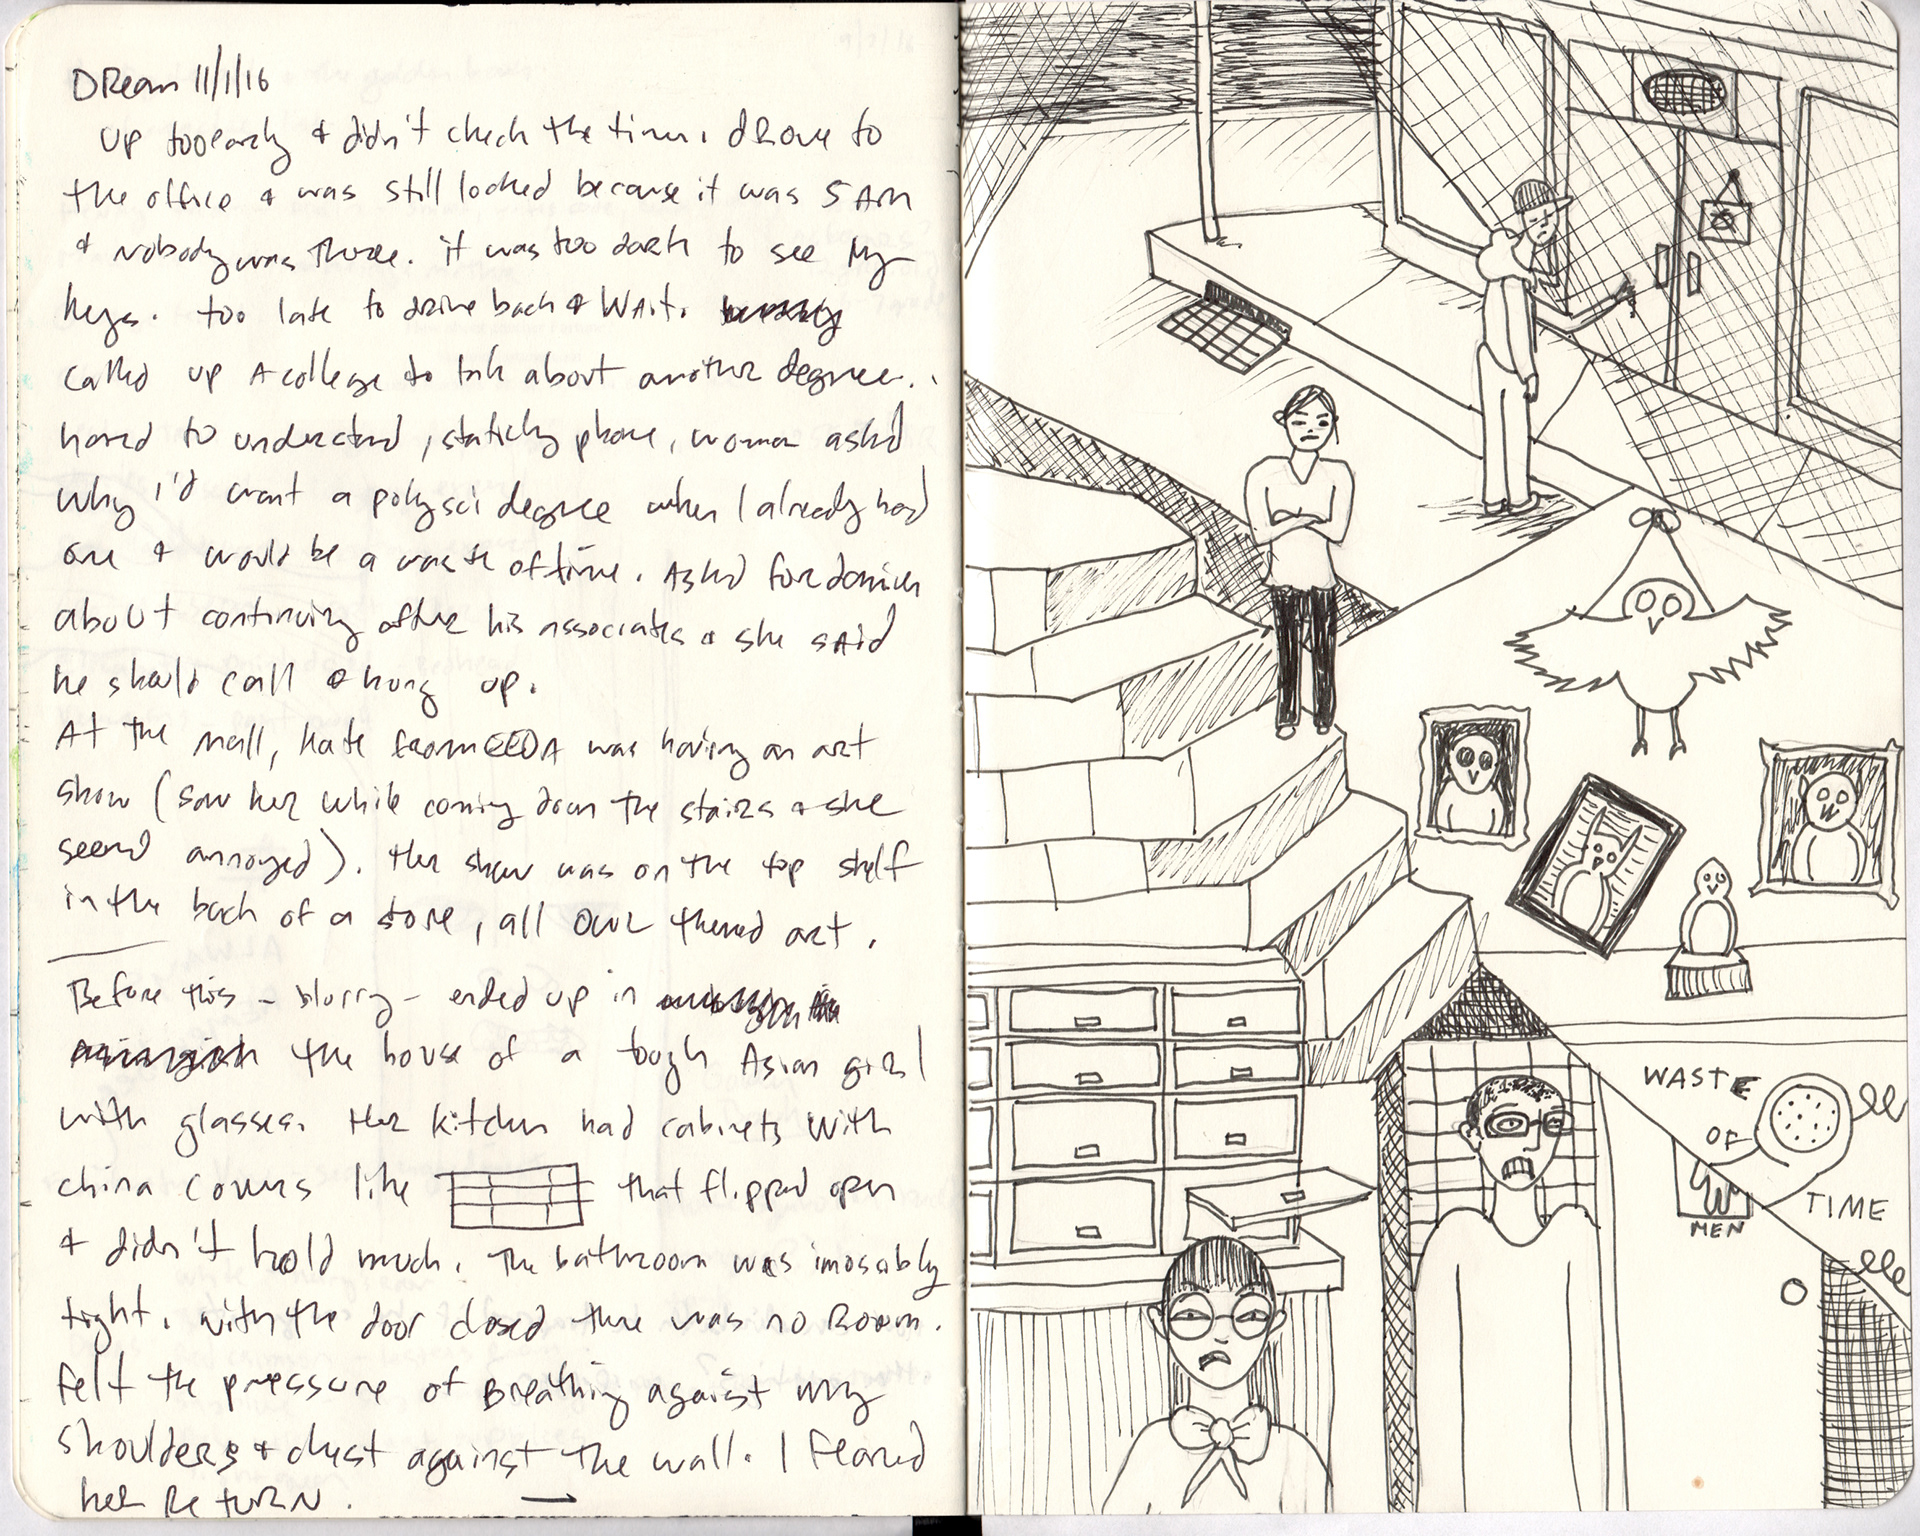 DReam 11/1/16
up too early & didn't check the time. dRove to
the office & was still locked because it was 5 Am
& nobody was there. it was too dark to see my
keys. too late to drive back & WAit.
called up A college to talk about another degree..
hared to understand, staticky phone, woman asked
why I'd want a poly sci degree when I already had
one & would be a waste of time. Asked for
about continuing after his associates & she sAid
he should call & hung up.
At the mall, kate from CEDA was having an art
show (saw her while coming down the stairs & she
seemed annoyed). Her show was on the top shelf
in the back of a store, all OWL themed art.
Before this - blurry - ended up in
the house of a tough Asian girl
with glasses. Her kitchen had cabinets with
china covers like that flipped open
& didn't hold much. The bathroom was imossibly
tight. with the door closed there was no Room.
Felt the pressure of Breathing against my
shoulders & chest against the wall. I Feared
her ReTURN.
WASTE
OF
TIME
MEN